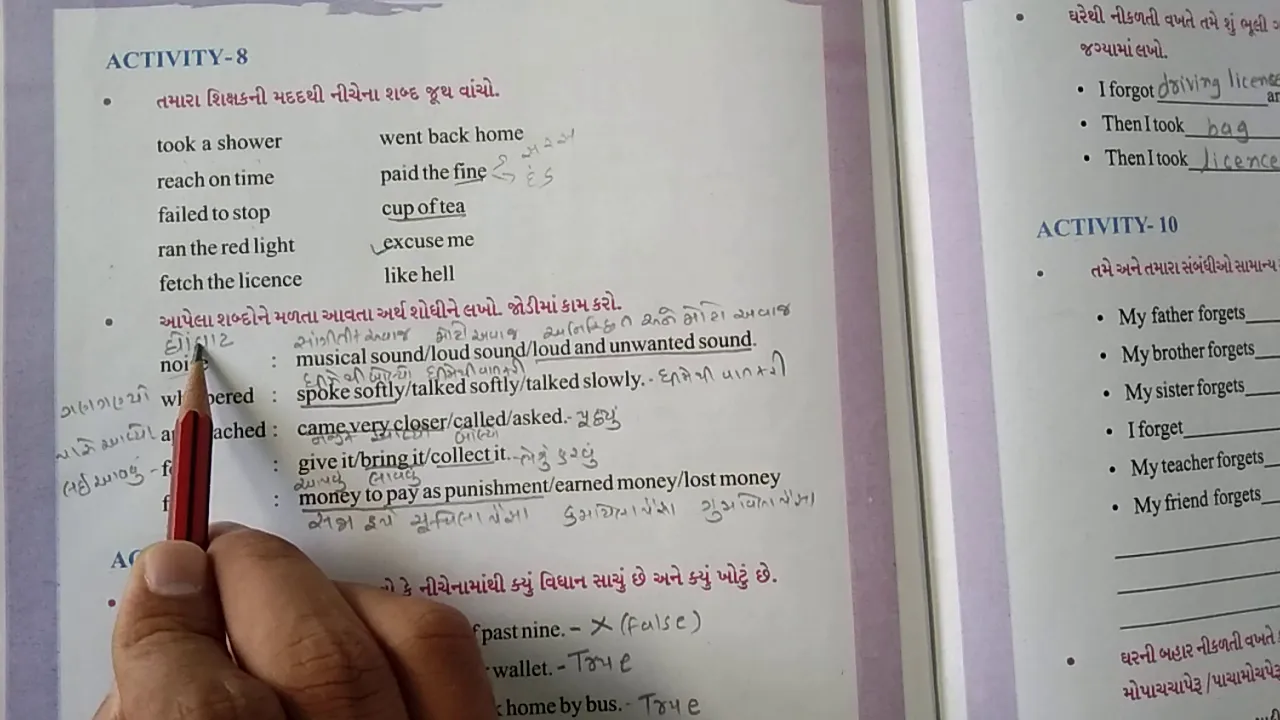 ACTIVITY-8
• તમારા શિક્ષકની મદદથી નીચેના શબ્દ જૂથ વાંચો.
took a shower went back home
reach on time paid the fine
દંડ
failed to stop cup of tea
ran the red light excuse me
fetch the licence like hell
• આપેલા શબ્દોને મળતા આવતા અર્થ શોધીને લખો. જોડીમાં કામ કરો.
ઘોંઘાટ મોટો અવાજ અને મોટો અવાજ
: musical sound/loud sound/loud and unwanted sound.
: spoke softly/talked softly/talked slowly. - ધીમેથી વાત કરી
: came very closer/called/asked. - પૂછ્યું
લઈ આવવું - : give it/bring it/collect it. - ભેગું કરવું
આપવું લાવવું
: money to pay as punishment/earned money/lost money
કે નીચેનામાંથી ક્યું વિધાન સાચું છે અને ક્યું ખોટું છે.
past nine. - × (false)
wallet. - True
home by bus. - True
• ઘરેથી નીકળતી વખતે તમે શું ભૂલી
જગ્યામાં લખો.
• I forgot driving licence
• Then I took bag
• Then I took licence
ACTIVITY-10
• તમે અને તમારા સંબંધીઓ સામાન્ય
• My father forgets
• My brother forgets
• My sister forgets
• I forget
• My teacher forgets
• My friend forgets
• ઘરની બહાર નીકળતી વખતે